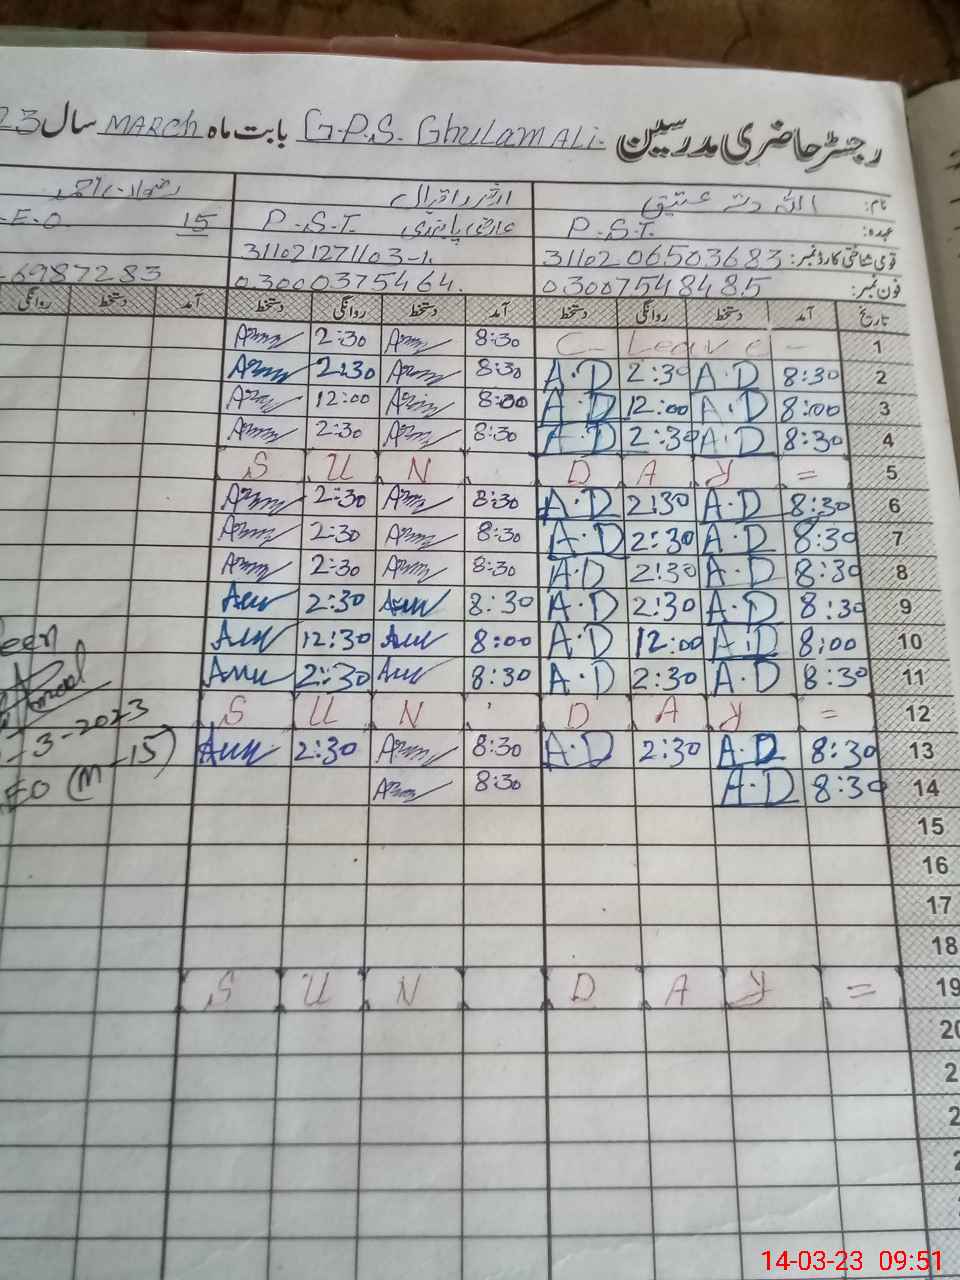 رجسٹر حاضری مدرسین G.P.S. Ghulam Ali. بابت ماہ MARCH سال 23
نام: اللہ دتہ عتیق
عہدہ: P.S.T. P.S.T. E.O. 15
قومی شناختی کارڈ نمبر: 3110206503683 311021271103-1.
فون نمبر: 03007548485 03000375464. 6987283
تاریخ آمد دستخط روانگی دستخط آمد دستخط روانگی دستخط آمد دستخط روانگی
1 C- Leave - 8:30 2:30
2 8:30 A.D 2:30 A.D 8:30 2:30
3 8:00 A.D 12:00 A.D 8:00 12:00
4 8:30 A.D 2:30 A.D 8:30 2:30
5 S U N D A Y =
6 8:30 A.D 2:30 A.D 8:30 2:30
7 8:30 A.D 2:30 A.D 8:30 2:30
8 8:30 A.D 2:30 A.D 8:30 2:30
9 8:30 A.D 2:30 A.D 8:30 2:30
10 8:00 A.D 12:00 A.D 8:00 12:30
11 8:30 A.D 2:30 A.D 8:30 2:30
12 S U N D A Y =
-3-2023
13 8:30 A.D 2:30 A.D 8:30 2:30
EO (M-15)
14 8:30 A.D 8:30
15
16
17
18
19 S U N D A Y =
20
2
2
2
2
14-03-23 09:51